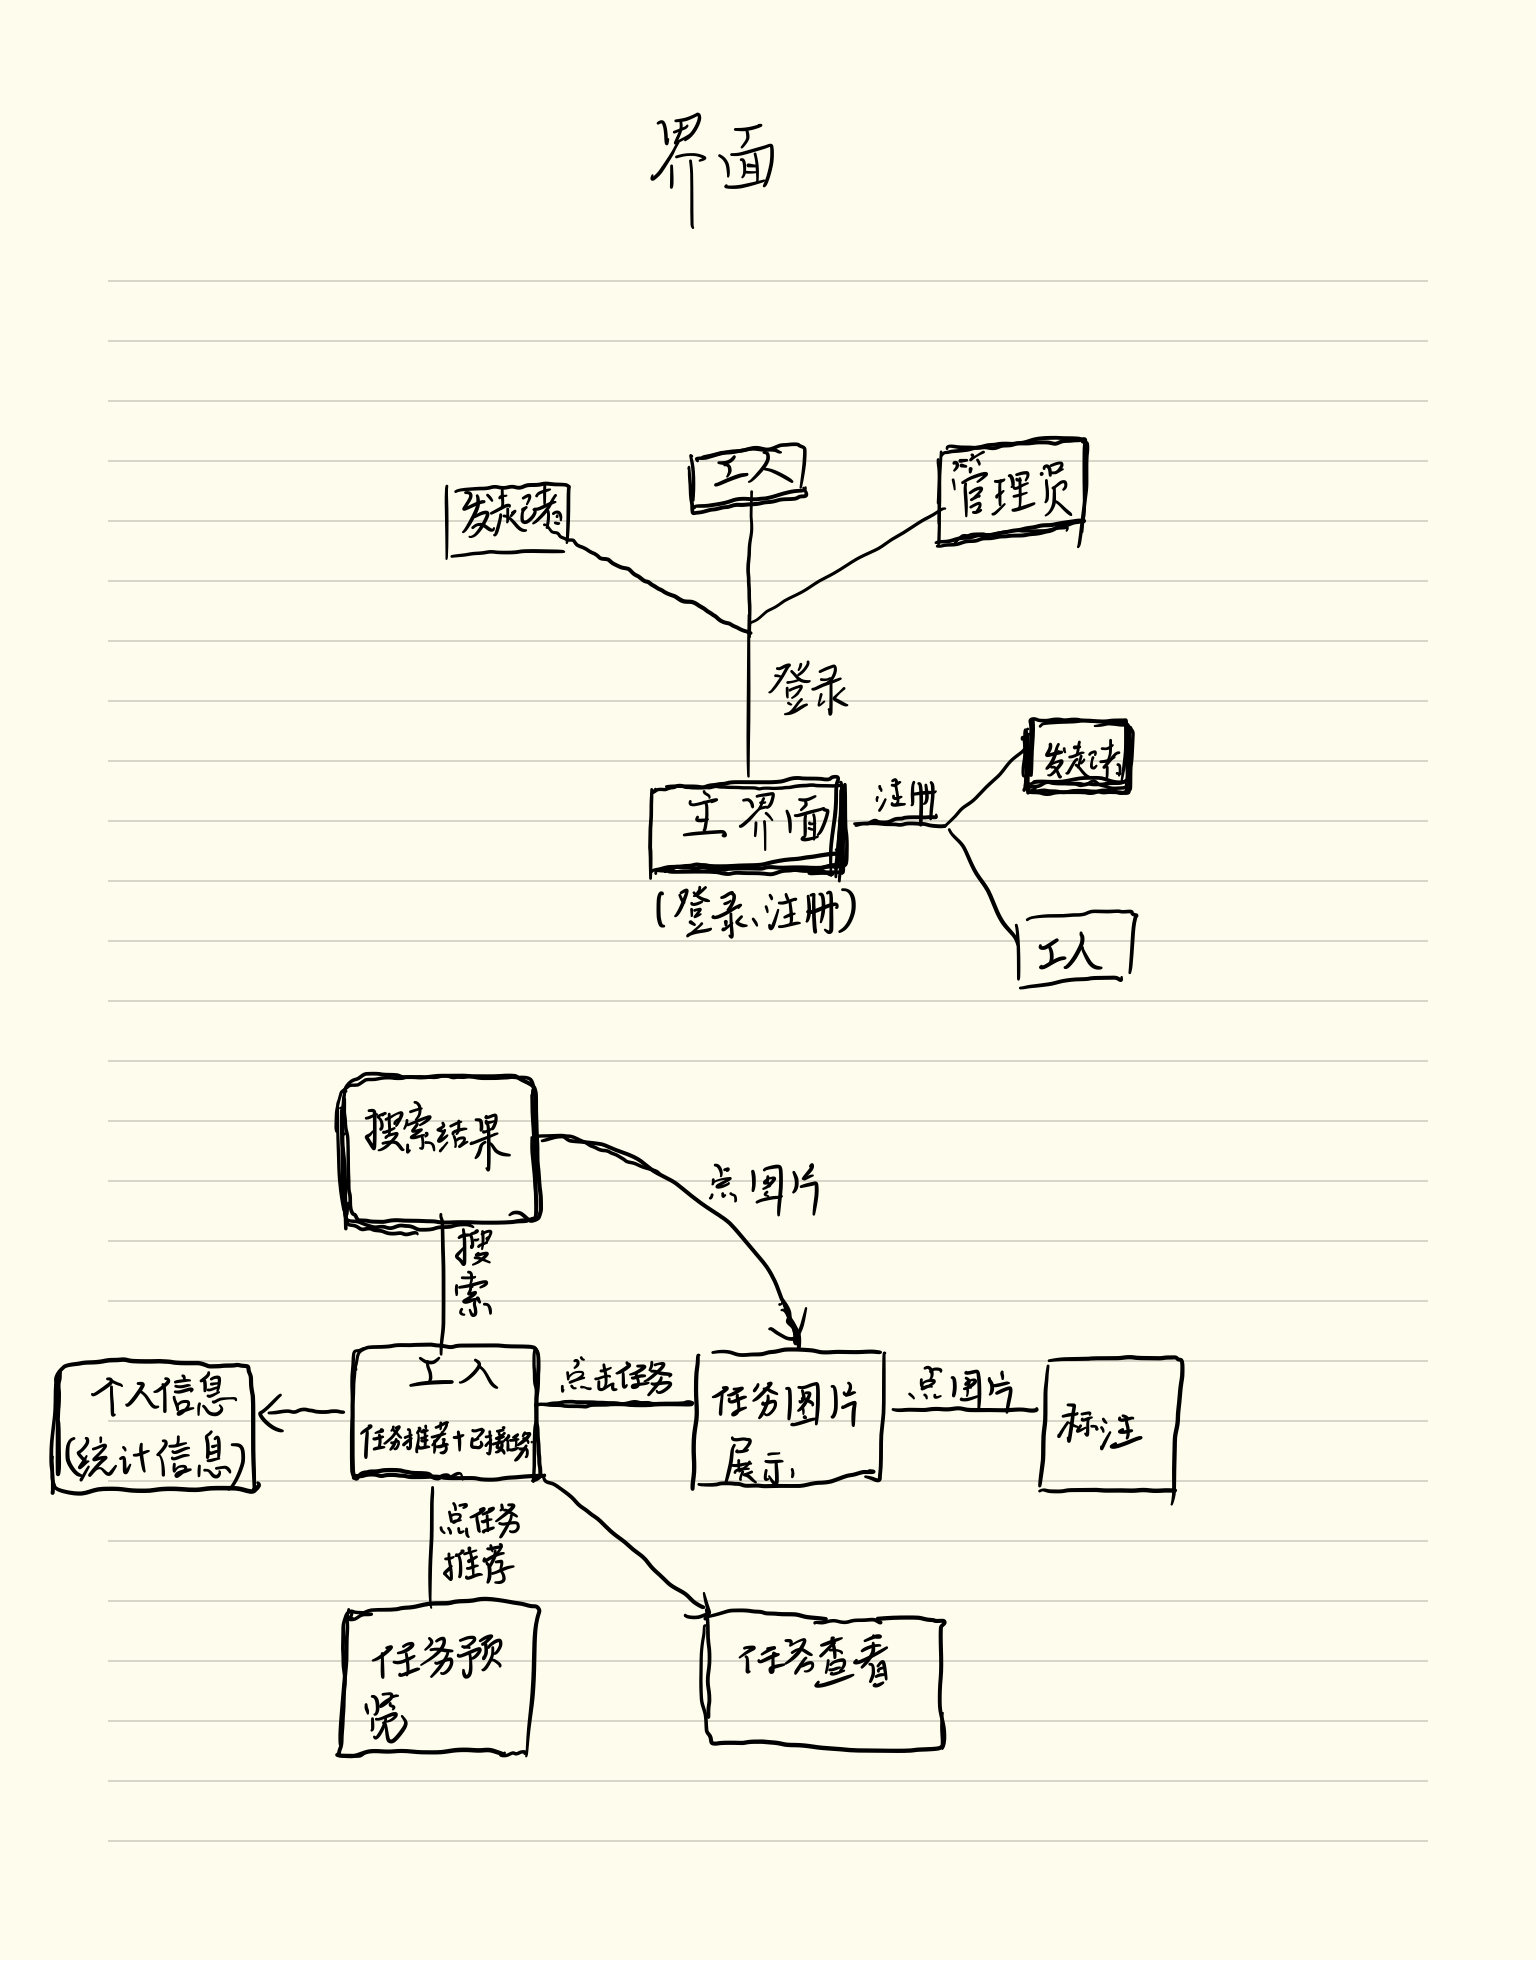 界面
工人
管理员
发起者
登录
发起者
主界面
注册
(登录、注册)
工人
搜索结果
点图片
搜
索
个人信息
(统计信息)
工人
任务推荐+已接任务
点击任务
任务图片
展示
点图片
标注
点任务
推荐
任务预
览
任务查看